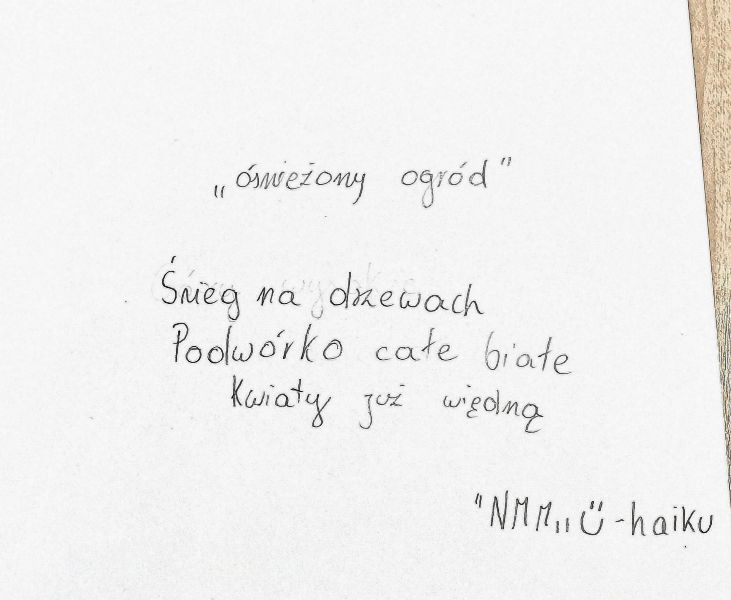 „ośnieżony ogród"
Śnieg na drzewach
Podwórko całe białe
Kwiaty już więdną
"NMM„ Ü -haiku